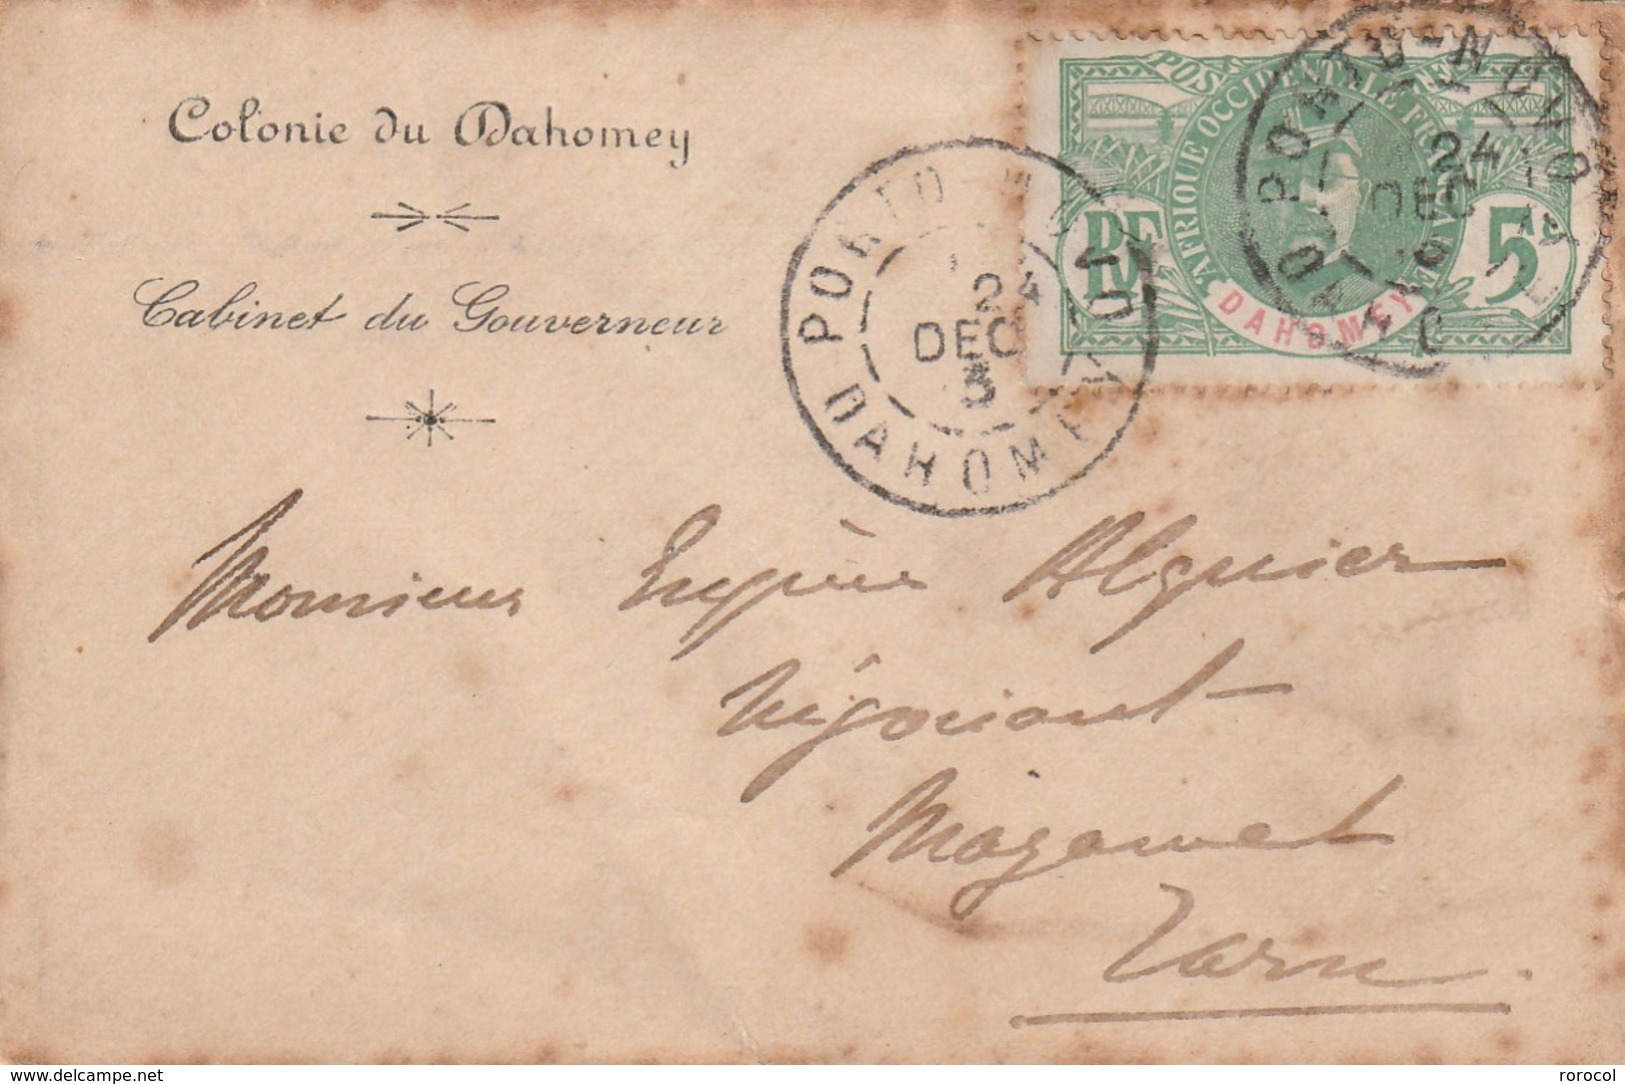 Colonie du Dahomey
Cabinet du Gouverneur
PORTO-NOVO
24
DEC
DAHOMEY
POSTES
AFRIQUE OCCIDENTALE FRANÇAISE
RF
5c
DAHOMEY
PORTO-NOVO
24
DEC
Monsieur Eugène Alquier
Négociant
Mazamet
Tarn.
delcampe.net
rorocol